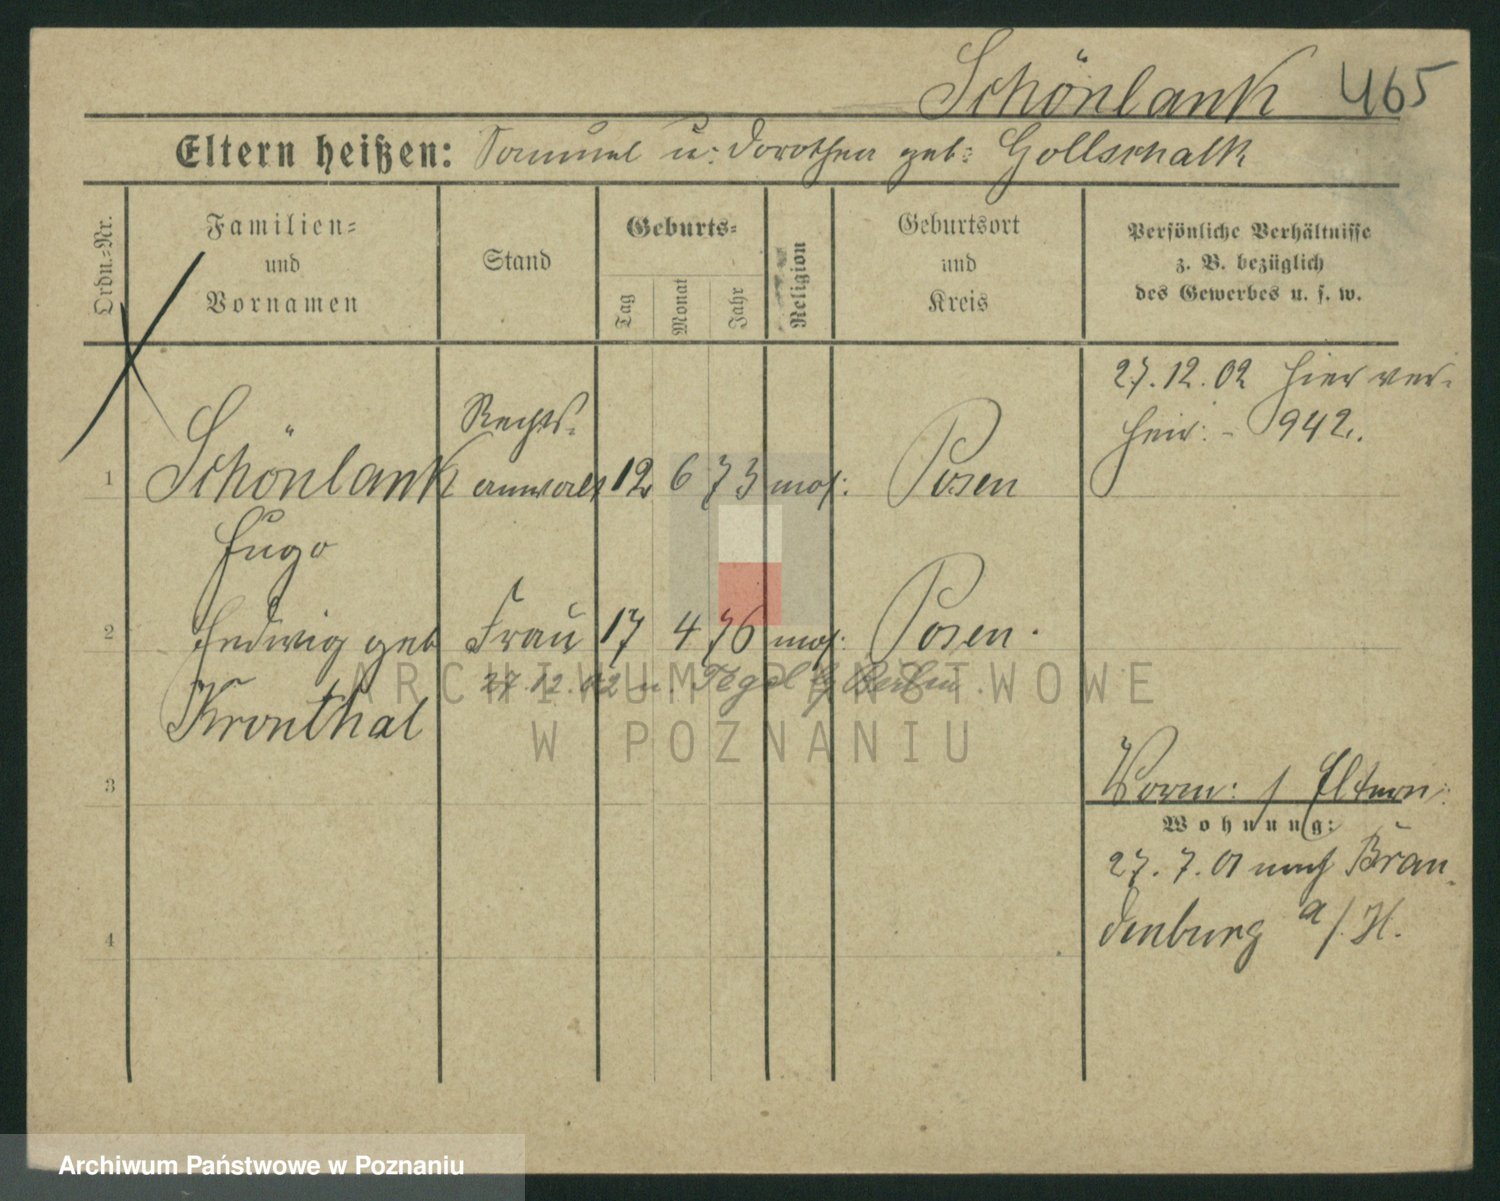 Schönlank 465
Eltern heißen: Samuel u: Dorothea geb: Gottschalk
Ordn.=Nr.
Familien=
und
Vornamen
Stand
Geburts=
Tag
Monat
Jahr
Religion
Geburtsort
und
Kreis
Persönliche Verhältnisse
z. B. bezüglich
des Gewerbes u. s. w.
27.12.02 hier ver-
heir: - 942.
Rechts-
1 Schönlank anwalt 12 6 73 mos: Posen
Hugo
2 Hedwig geb Frau 17 4 76 mos: Posen.
27.12.02 n. Tegel b/ Berlin.
Kronthal
3
Worm: / Eltern:
Wohnung:
27.7.01 nach Bran-
denburg a/H.
4
ARCHIWUM PAŃSTWOWE
W POZNANIU
Archiwum Państwowe w Poznaniu